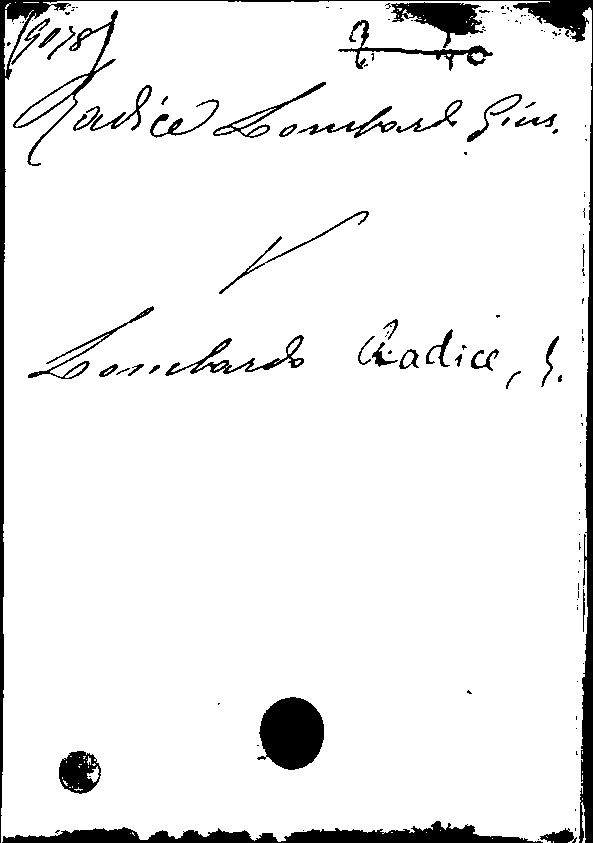 (9078)
Radice Lombardo Gius.
V
Lombardo Radice, G.